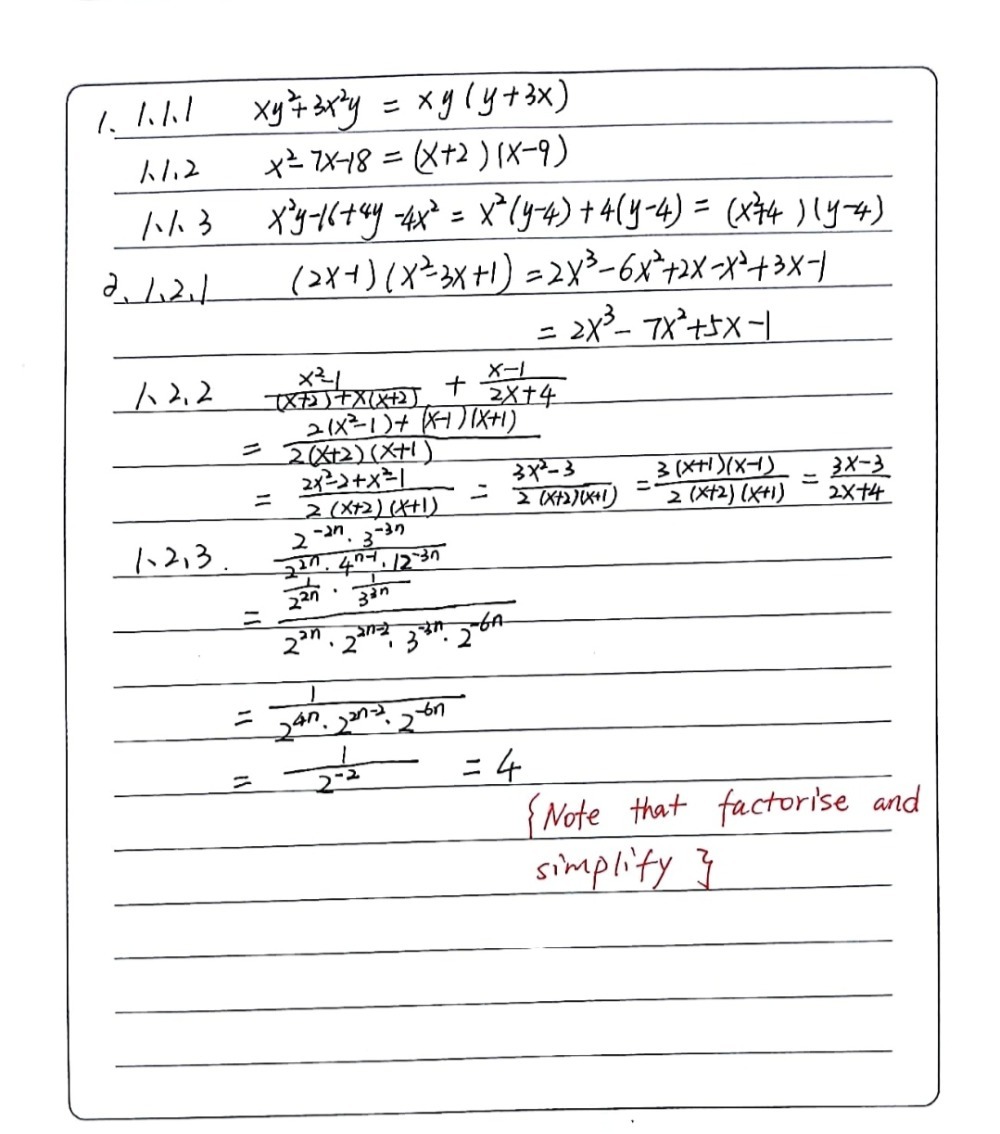 1. 1.1.1 xy²+3x²y = xy(y+3x)
1.1.2 x²-7x-18 = (x+2)(x-9)
1.1.3 x²y-16+4y-4x² = x²(y-4)+4(y-4) = (x²+4)(y-4)
2. 1.2.1 (2x-1)(x²-3x+1) = 2x³-6x²+2x-x²+3x-1
= 2x³-7x²+5x-1
1.2.2 (x²-1)/((x+2)+x(x+2)) + (x-1)/(2x+4)
= (2(x²-1)+(x-1)(x+1))/(2(x+2)(x+1))
= (2x²-2+x²-1)/(2(x+2)(x+1)) = (3x²-3)/(2(x+2)(x+1)) = (3(x+1)(x-1))/(2(x+2)(x+1)) = (3x-3)/(2x+4)
1.2.3. (2^(-2n)·3^(-3n))/(2^(2n)·4^(n-1)·12^(-3n))
= (1/2^(2n)·1/3^(3n))/(2^(2n)·2^(2n-2)·3^(-3n)·2^(-6n))
= 1/(2^(4n)·2^(2n-2)·2^(-6n))
= 1/2^(-2) = 4
{Note that factorise and
simplify}